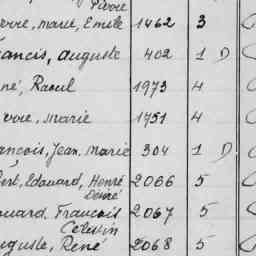 Pierre
ierre, Marie, Emile 1462 3
rancis, Auguste 402 1 D
né, Raoul 1973 4
rre, Marie 1751 4
ançois, Jean, Marie 304 1 D
bert, Edouard, Henri 2066 5
Désiré
ouard, François 2067 5
Célestin
uguste, René 2068 5